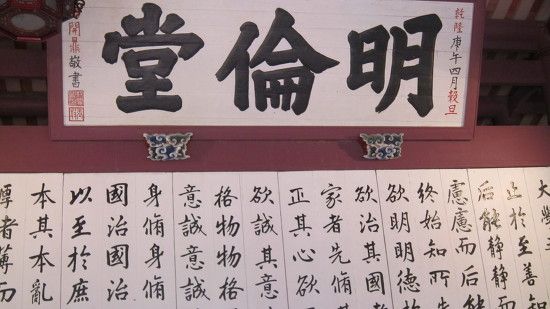 明倫堂
乾隆庚午四月穀旦
開鼎敬書
大學
止於至善知
后能靜靜而
慮慮而后能
終始知所先
欲明明德於
欲治其國
家者先脩其
正其心欲
欲誠其意
格物物格
意誠意誠
身脩身脩
國治國治
以至於庶
本其本亂
厚者薄而